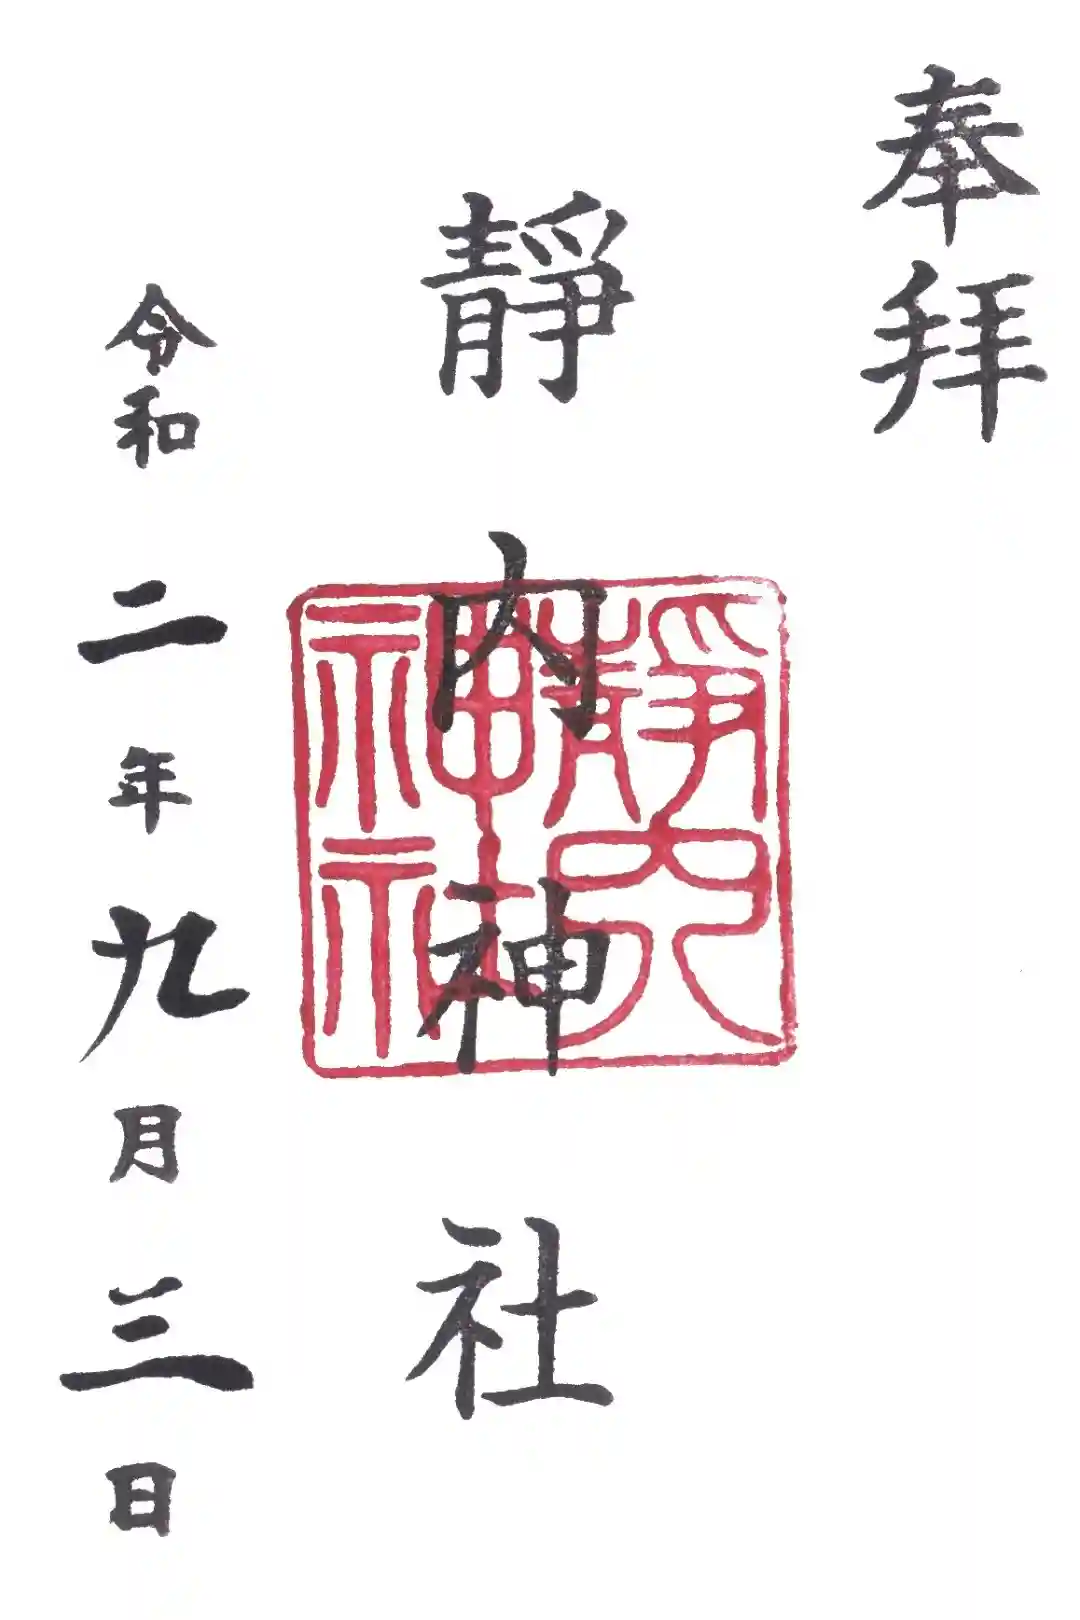 奉拜
靜内神社
靜内
神社
令和二年九月三日